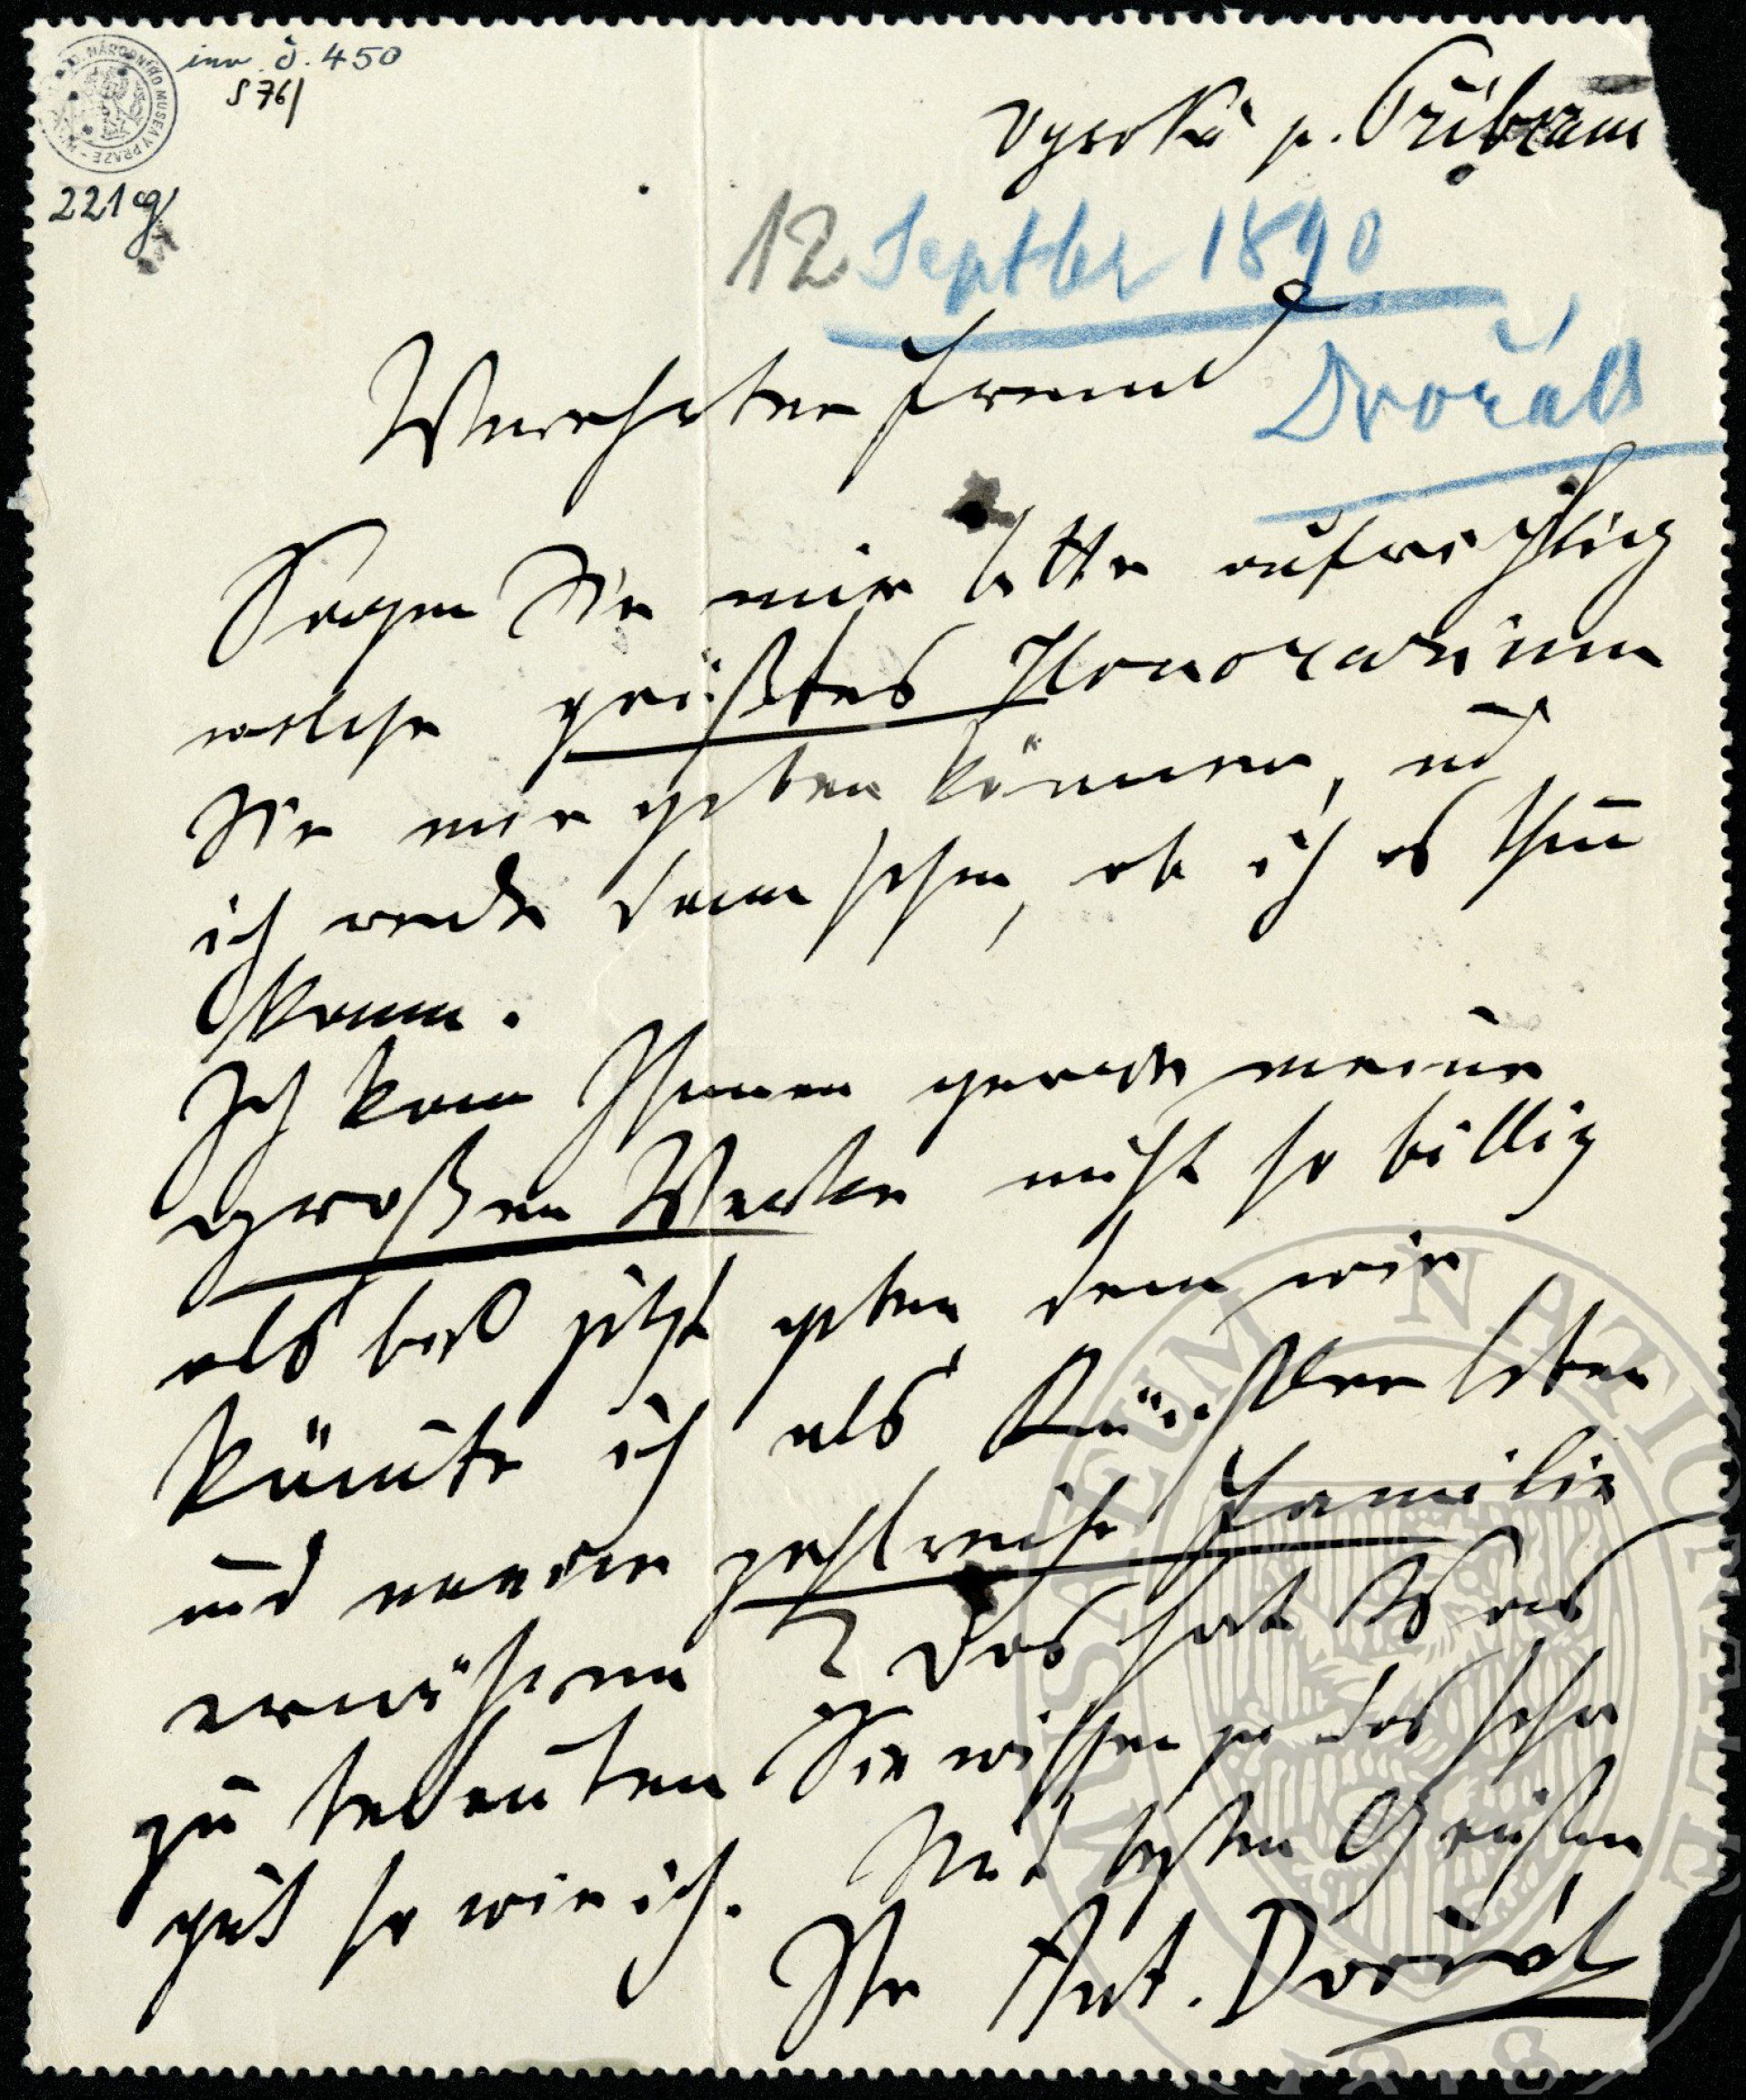 inv. č. 450
S 76/
221 g
Vysoká p. Příbram
12 Septber 1890
Dvořák
Werthester Freund
Sagen Sie mir bitte aufrichtig
welche größtes Honorarium
Sie mir geben können, ud
ich werde dann sehen, ob ich es thun
kann.
Ich kann Ihnen gerade meine
großen Werke nicht so billig
als bis jetzt geben, denn wie
könnte ich als Künstler leben
und meine zahlreiche Familie
ernähren? Das hat Was
zu bedeuten Sie wissen ja das sehr
gut so wie ich. Mit besten Grüßen
Ihr Ant. Dvořák
MUSAEUM NATIONALE